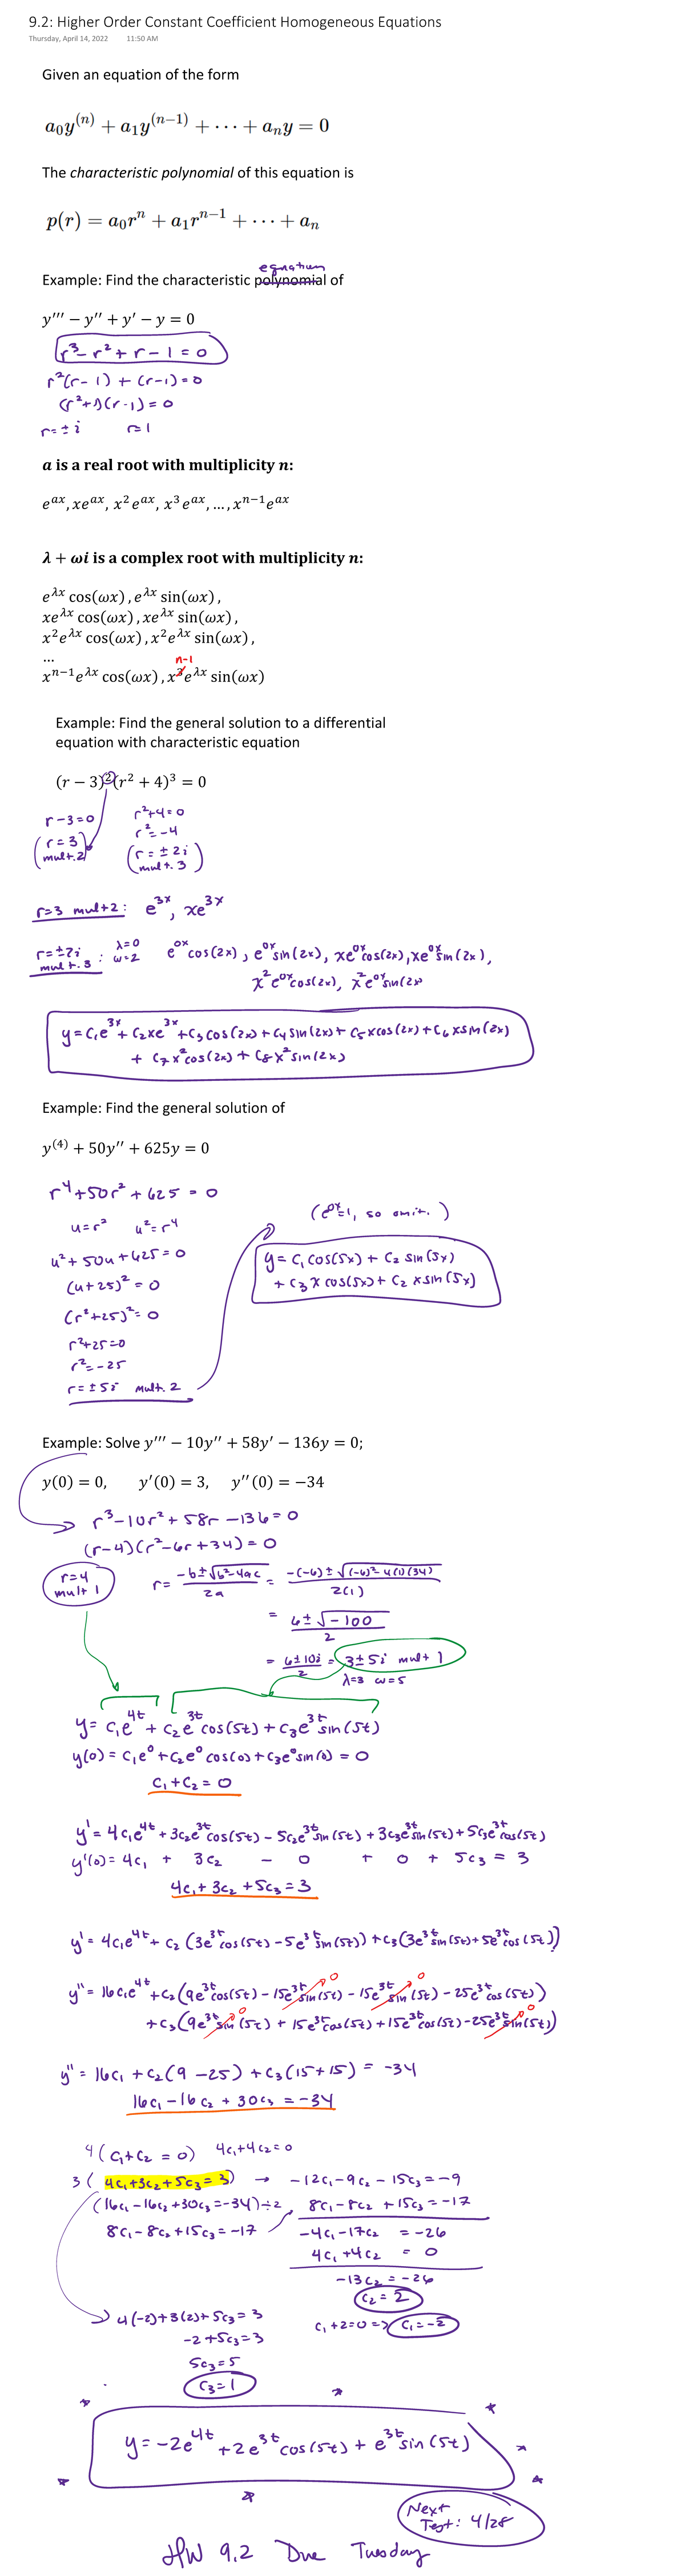 9.2: Higher Order Constant Coefficient Homogeneous Equations
Thursday, April 14, 2022 11:50 AM
Given an equation of the form
a₀y⁽ⁿ⁾ + a₁y⁽ⁿ⁻¹⁾ + ··· + aₙy = 0
The characteristic polynomial of this equation is
p(r) = a₀rⁿ + a₁rⁿ⁻¹ + ··· + aₙ
equation
Example: Find the characteristic polynomial of
y''' − y'' + y' − y = 0
r³ − r² + r − 1 = 0
r²(r − 1) + (r − 1) = 0
(r² + 1)(r − 1) = 0
r = ± i r = 1
a is a real root with multiplicity n:
eᵃˣ, xeᵃˣ, x²eᵃˣ, x³eᵃˣ, ..., xⁿ⁻¹eᵃˣ
λ + ωi is a complex root with multiplicity n:
e^λx cos(ωx), e^λx sin(ωx),
xe^λx cos(ωx), xe^λx sin(ωx),
x²e^λx cos(ωx), x²e^λx sin(ωx),
...
n-1
xⁿ⁻¹e^λx cos(ωx), x²e^λx sin(ωx)
Example: Find the general solution to a differential
equation with characteristic equation
(r − 3)²(r² + 4)³ = 0
r − 3 = 0 r² + 4 = 0
r² = −4
(r = 3 mult. 2) (r = ± 2i mult. 3)
r=3 mult 2: e^3x, xe^3x
r = ±2i mult. 3 : λ=0 ω=2 e^0x cos(2x), e^0x sin(2x), xe^0x cos(2x), xe^0x sin(2x),
x²e^0x cos(2x), x²e^0x sin(2x)
y = c₁e^3x + c₂xe^3x + c₃cos(2x) + c₄sin(2x) + c₅xcos(2x) + c₆xsin(2x)
+ c₇x²cos(2x) + c₈x²sin(2x)
Example: Find the general solution of
y⁽⁴⁾ + 50y'' + 625y = 0
r⁴ + 50r² + 625 = 0
u = r² u² = r⁴
u² + 50u + 625 = 0
(u + 25)² = 0
(r² + 25)² = 0
r² + 25 = 0
r² = −25
r = ± 5i mult. 2
(e^0x = 1, so omit.)
y = c₁ cos(5x) + c₂ sin(5x)
+ c₃ x cos(5x) + c₂ x sin(5x)
Example: Solve y''' − 10y'' + 58y' − 136y = 0;
y(0) = 0, y'(0) = 3, y''(0) = −34
r³ − 10r² + 58r − 136 = 0
(r − 4)(r² − 6r + 34) = 0
r = 4 mult 1
r = (−b ± √(b² − 4ac))/2a = (−(−6) ± √((−6)² − 4(1)(34)))/2(1)
= (6 ± √−100)/2
= (6 ± 10i)/2 = 3 ± 5i mult 1
λ=3 ω=5
y = c₁e^4t + c₂e^3t cos(5t) + c₃e^3t sin(5t)
y(0) = c₁e⁰ + c₂e⁰ cos(0) + c₃e⁰ sin(0) = 0
c₁ + c₂ = 0
y' = 4c₁e^4t + 3c₂e^3t cos(5t) − 5c₂e^3t sin(5t) + 3c₃e^3t sin(5t) + 5c₃e^3t cos(5t)
y'(0) = 4c₁ + 3c₂ − 0 + 0 + 5c₃ = 3
4c₁ + 3c₂ + 5c₃ = 3
y' = 4c₁e^4t + c₂(3e^3t cos(5t) − 5e^3t sin(5t)) + c₃(3e^3t sin(5t) + 5e^3t cos(5t))
y'' = 16c₁e^4t + c₂(9e^3t cos(5t) − 15e^3t sin(5t) 0 − 15e^3t sin(5t) 0 − 25e^3t cos(5t))
+ c₃(9e^3t sin(5t) 0 + 15e^3t cos(5t) + 15e^3t cos(5t) − 25e^3t sin(5t) 0)
y'' = 16c₁ + c₂(9 − 25) + c₃(15 + 15) = −34
16c₁ − 16c₂ + 30c₃ = −34
4(c₁ + c₂ = 0) 4c₁ + 4c₂ = 0
3(4c₁ + 3c₂ + 5c₃ = 3) → −12c₁ − 9c₂ − 15c₃ = −9
(16c₁ − 16c₂ + 30c₃ = −34) ÷ 2 8c₁ − 8c₂ + 15c₃ = −17
8c₁ − 8c₂ + 15c₃ = −17 −4c₁ − 17c₂ = −26
4c₁ + 4c₂ = 0
−13c₂ = −26
c₂ = 2
4(−2) + 3(2) + 5c₃ = 3 c₁ + 2 = 0 => c₁ = −2
−2 + 5c₃ = 3
5c₃ = 5
c₃ = 1
y = −2e^4t + 2e^3t cos(5t) + e^3t sin(5t)
Next
Test: 4/28
HW 9.2 Due Tuesday